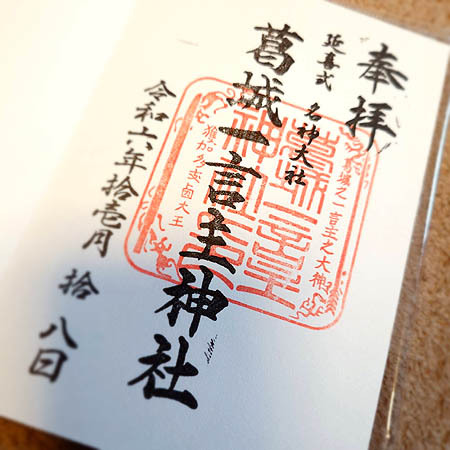 奉拝
延喜式 名神大社
葛城一言主神社
令和六年拾壹月拾八日
葛城之一言主之大神
獲加多支鹵大王